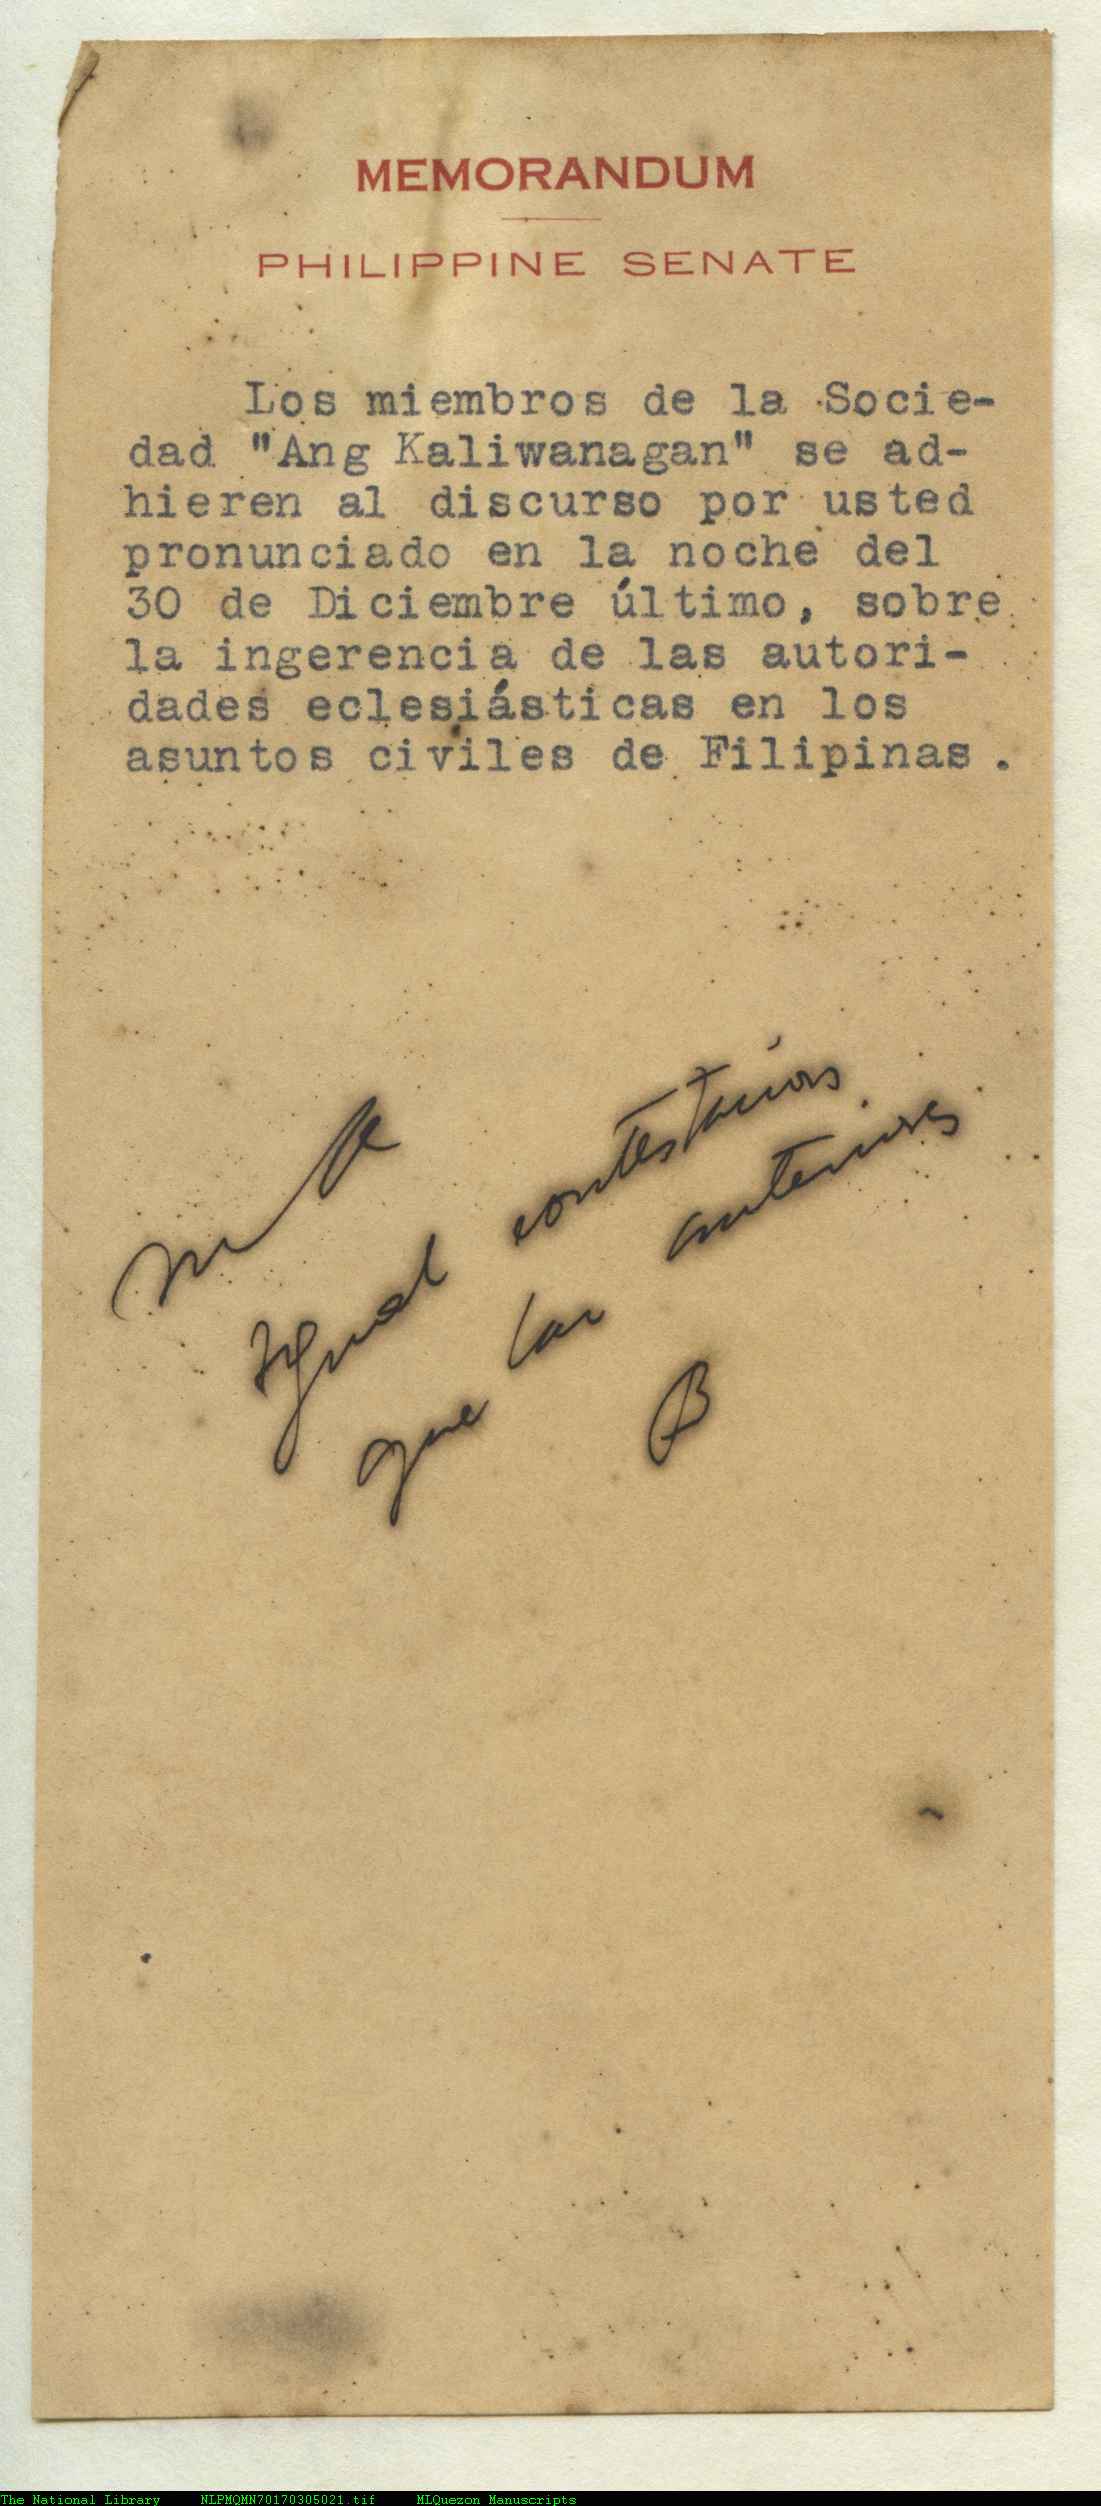 MEMORANDUM
PHILIPPINE SENATE
Los miembros de la Socie-
dad "Ang Kaliwanagan" se ad-
hieren al discurso por usted
pronunciado en la noche del
30 de Diciembre último, sobre
la ingerencia de las autori-
dades eclesiásticas en los
asuntos civiles de Filipinas.
Igual
que las anteriores
B
The National Library NLPMQMN70170305021.tif MLQuezon Manuscripts